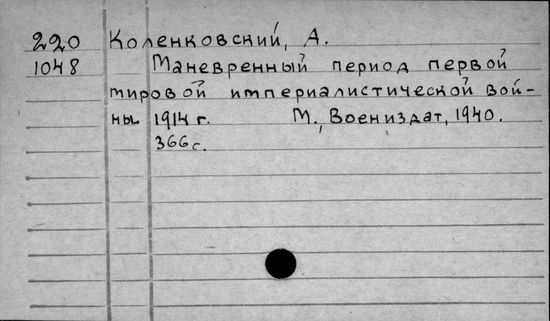 220 Коленковский, А.
1048 Маневренный период первой
мировой империалистической вой-
ны 1914 г. М., Воениздат, 1940.
366 с.